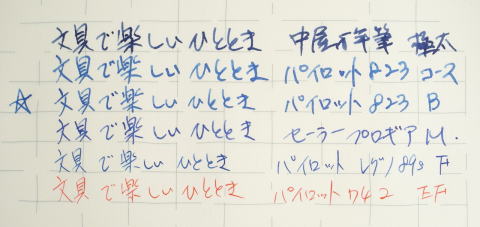 文具で楽しいひととき 中屋万年筆 極太
文具で楽しいひととき パイロット823 コース
☆ 文具で楽しいひととき パイロット823 B
文具で楽しいひととき セーラープロギア M.
文具で楽しいひととき パイロット レグノ89s F
文具で楽しいひととき パイロット742 EF